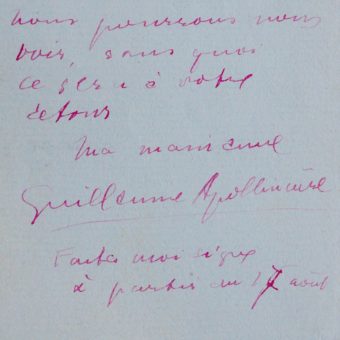 nous puissions nous
voir, sans quoi
ce sera à votre
retour
Ma main amie
Guillaume Apollinaire
Faites moi signe
à partir du 17 août